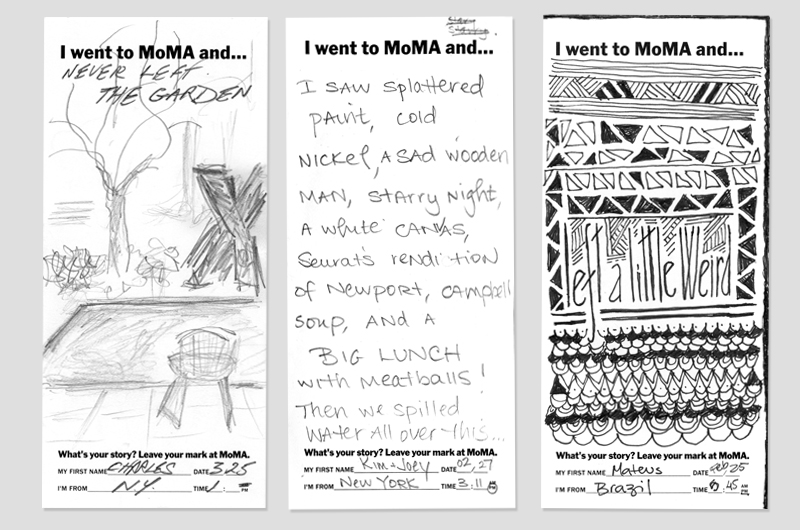 I went to MoMA and...
NEVER LEFT
THE GARDEN
What's your story? Leave your mark at MoMA.
MY FIRST NAME CHARLES DATE 3.25
I'M FROM N.Y. TIME PM
I went to MoMA and...
I SAW splattered
paint, cold
NICKEL, A SAD wooden
MAN, starry Night,
A white CANVAS,
Seurat's rendition
of Newport, Campbell
soup, AND A
BIG LUNCH
with meatballs!
Then we spilled
WATER All over this...
What's your story? Leave your mark at MoMA.
MY FIRST NAME Kim + Joey DATE 02,27
I'M FROM NEW YORK TIME 3:11 PM
I went to MoMA and...
left a little Weird
What's your story? Leave your mark at MoMA.
MY FIRST NAME Mateus DATE 25
I'M FROM Brazil TIME :45 AM PM